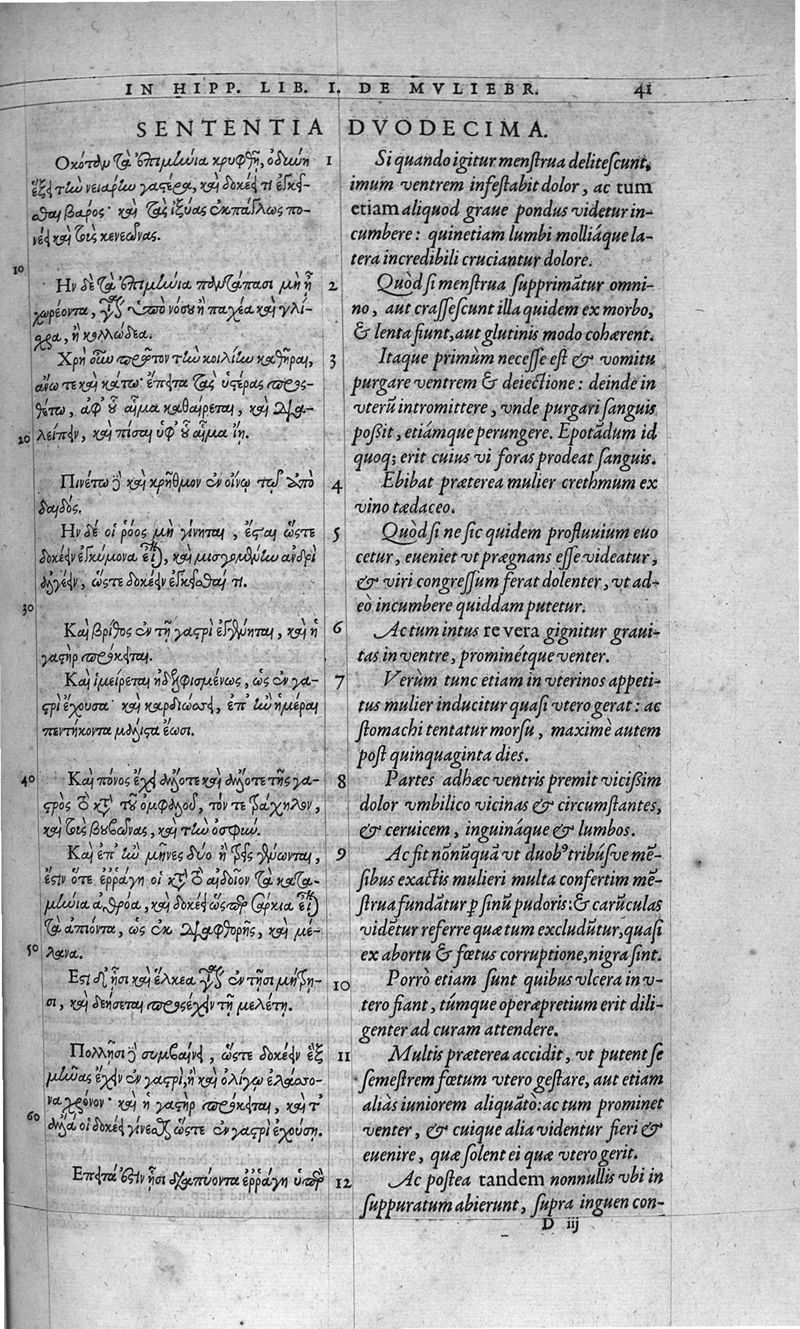 IN HIPP. LIB. I. DE MVLIEBR. 41
SENTENTIA DVODECIMA.
Οκόταν τὰ ἐπιμήνια κρυφθῇ, ὀδύνη
ἕξει τὴν νειαρὴν γαστέρα, καὶ δοκέει τι ἐγκέε-
σθαι βάρος· καὶ τὰς ἰξύας ἐκπάγλως πο-
νέει καὶ τοὺς κενεῶνας.
10
Ην δὲ τὰ ἐπιμήνια παντάπασι μὴ ᾖ
χωρέοντα, ὑπὸ νόσου ἢ παχέα καὶ γλί-
σχρα, ἢ κολλώδεα.
Χρὴ οὖν πρῶτον τὴν κοιλίην καθῆραι,
ἄνω τε καὶ κάτω· ἔπειτα τὰς ὑστέρας προσ-
θέτω, ἀφ' οὗ αἷμα καθαίρεται, καὶ
20 καὶ πῖσαι ὑφ' οὗ αἷμα ἴῃ.
Πινέτω δὲ καὶ κρῆθμον ἐν οἴνῳ τῷ ἀπὸ
δαιδός.
Ην δέ οἱ ῥόος μὴ γίνηται, ἔσται ὥστε
δοκέειν ἐγκύμονα εἶναι, καὶ μισγομένην ἀνδρὶ
ἀλγέειν, ὥστε δοκέειν ἐγκεῖσθαι τι.
30
Καὶ βρῖθος ἐν τῇ γαστρὶ ἐγγίνηται, καὶ ἡ
γαστὴρ προκέεται.
Καὶ ἱμείρεται ὡς ἐν γα-
στρὶ ἔχουσα· καὶ καρδιώσσει, ἐπ' ἢν ἡμέραι
πεντήκοντα μάλιστα ἔωσι.
40 Καὶ πόνος ἔχει ἄλλοτε καὶ ἄλλοτε τῆς γα-
στρὸς τὸ κατὰ τοῦ ὀμφαλοῦ, τόν τε τράχηλον,
καὶ τοὺς βουβῶνας, καὶ τὴν ὀσφύν.
Καὶ ἐπ' ἢν μῆνες δύο ἢ τρεῖς γένωνται,
ἔστιν ὅτε ἐρράγη οἱ κατὰ τὸ αἰδοῖον τὰ κατα-
μήνια ἀθρόα, καὶ δοκέει ὥσπερ σαρκία εἶναι
τὰ ἀπιόντα, ὡς ἐκ διαφθορῆς, καὶ μέ-
50 λανα.
Εστι δ' ᾗσι καὶ ἕλκεα ἐν τῇσι μήτρῃ-
σι, καὶ δεήσεται προσέχειν τῇ μελέτῃ.
Πολλῇσι δὲ συμβαίνει, ὥστε δοκέειν ἓξ
μῆνας ἔχειν ἐν γαστρὶ, ἢ καὶ ὀλίγῳ ἐλάσσο-
να χρόνον· καὶ ἡ γαστὴρ προκέεται, καὶ τ'
60 ἄλλα οἱ δοκέει γίνεσθαι ὥστε ἐν γαστρὶ ἐχούσῃ.
Επειτα ἐστὶν ᾗσι ἐρράγη ὑπὲρ
1 Si quando igitur menſtrua deliteſcunt,
imum ventrem infeſtabit dolor, ac tum
etiam aliquod graue pondus videtur in-
cumbere: quinetiam lumbi molliáque la-
tera incredibili cruciantur dolore.
2 Quòd ſi menſtrua ſupprimātur omni-
no, aut craſſeſcunt illa quidem ex morbo,
& lenta fiunt, aut glutinis modo cohærent.
3 Itaque primùm neceſſe eſt & vomitu
purgare ventrem & deiectione: deinde in
vterū intromittere, vnde purgari ſanguis
poſsit, etiámque perungere. Epotādum id
quoq; erit cuius vi foras prodeat ſanguis.
4 Ebibat præterea mulier crethmum ex
vino tædaceo.
5 Quòd ſi ne ſic quidem profluuium euo
cetur, eueniet vt prægnans eſſe videatur,
& viri congreſſum ferat dolenter, vt ad-
eò incumbere quiddam putetur.
6 Ac tum intus re vera gignitur graui-
tas in ventre, prominétque venter.
7 Verùm tunc etiam in vterinos appeti-
tus mulier inducitur quaſi vtero gerat: ac
ſtomachi tentatur morſu, maximè autem
poſt quinquaginta dies.
8 Partes adhæc ventris premit viciſſim
dolor vmbilico vicinas & circumſtantes,
& ceruicem, inguináque & lumbos.
9 Ac fit nōnūquā vt duobꝰ tribúſve mē-
ſibus exactis mulieri multa confertim mē-
ſtrua fundātur ꝑ ſinū pudoris: & carūculas
vidētur referre quæ tum excludūtur, quaſi
ex abortu & fœtus corruptione, nigra ſint.
10 Porrò etiam ſunt quibus vlcera in v-
tero fiant, túmque operæpretium erit dili-
genter ad curam attendere.
11 Multis præterea accidit, vt putent ſe
ſemeſtrem fœtum vtero geſtare, aut etiam
aliàs iuniorem aliquāto: ac tum prominet
venter, & cuique alia videntur fieri &
euenire, quæ ſolent ei quæ vtero gerit.
12 Ac poſtea tandem nonnullis vbi in
ſuppuratum abierunt, ſupra inguen con-
D iij